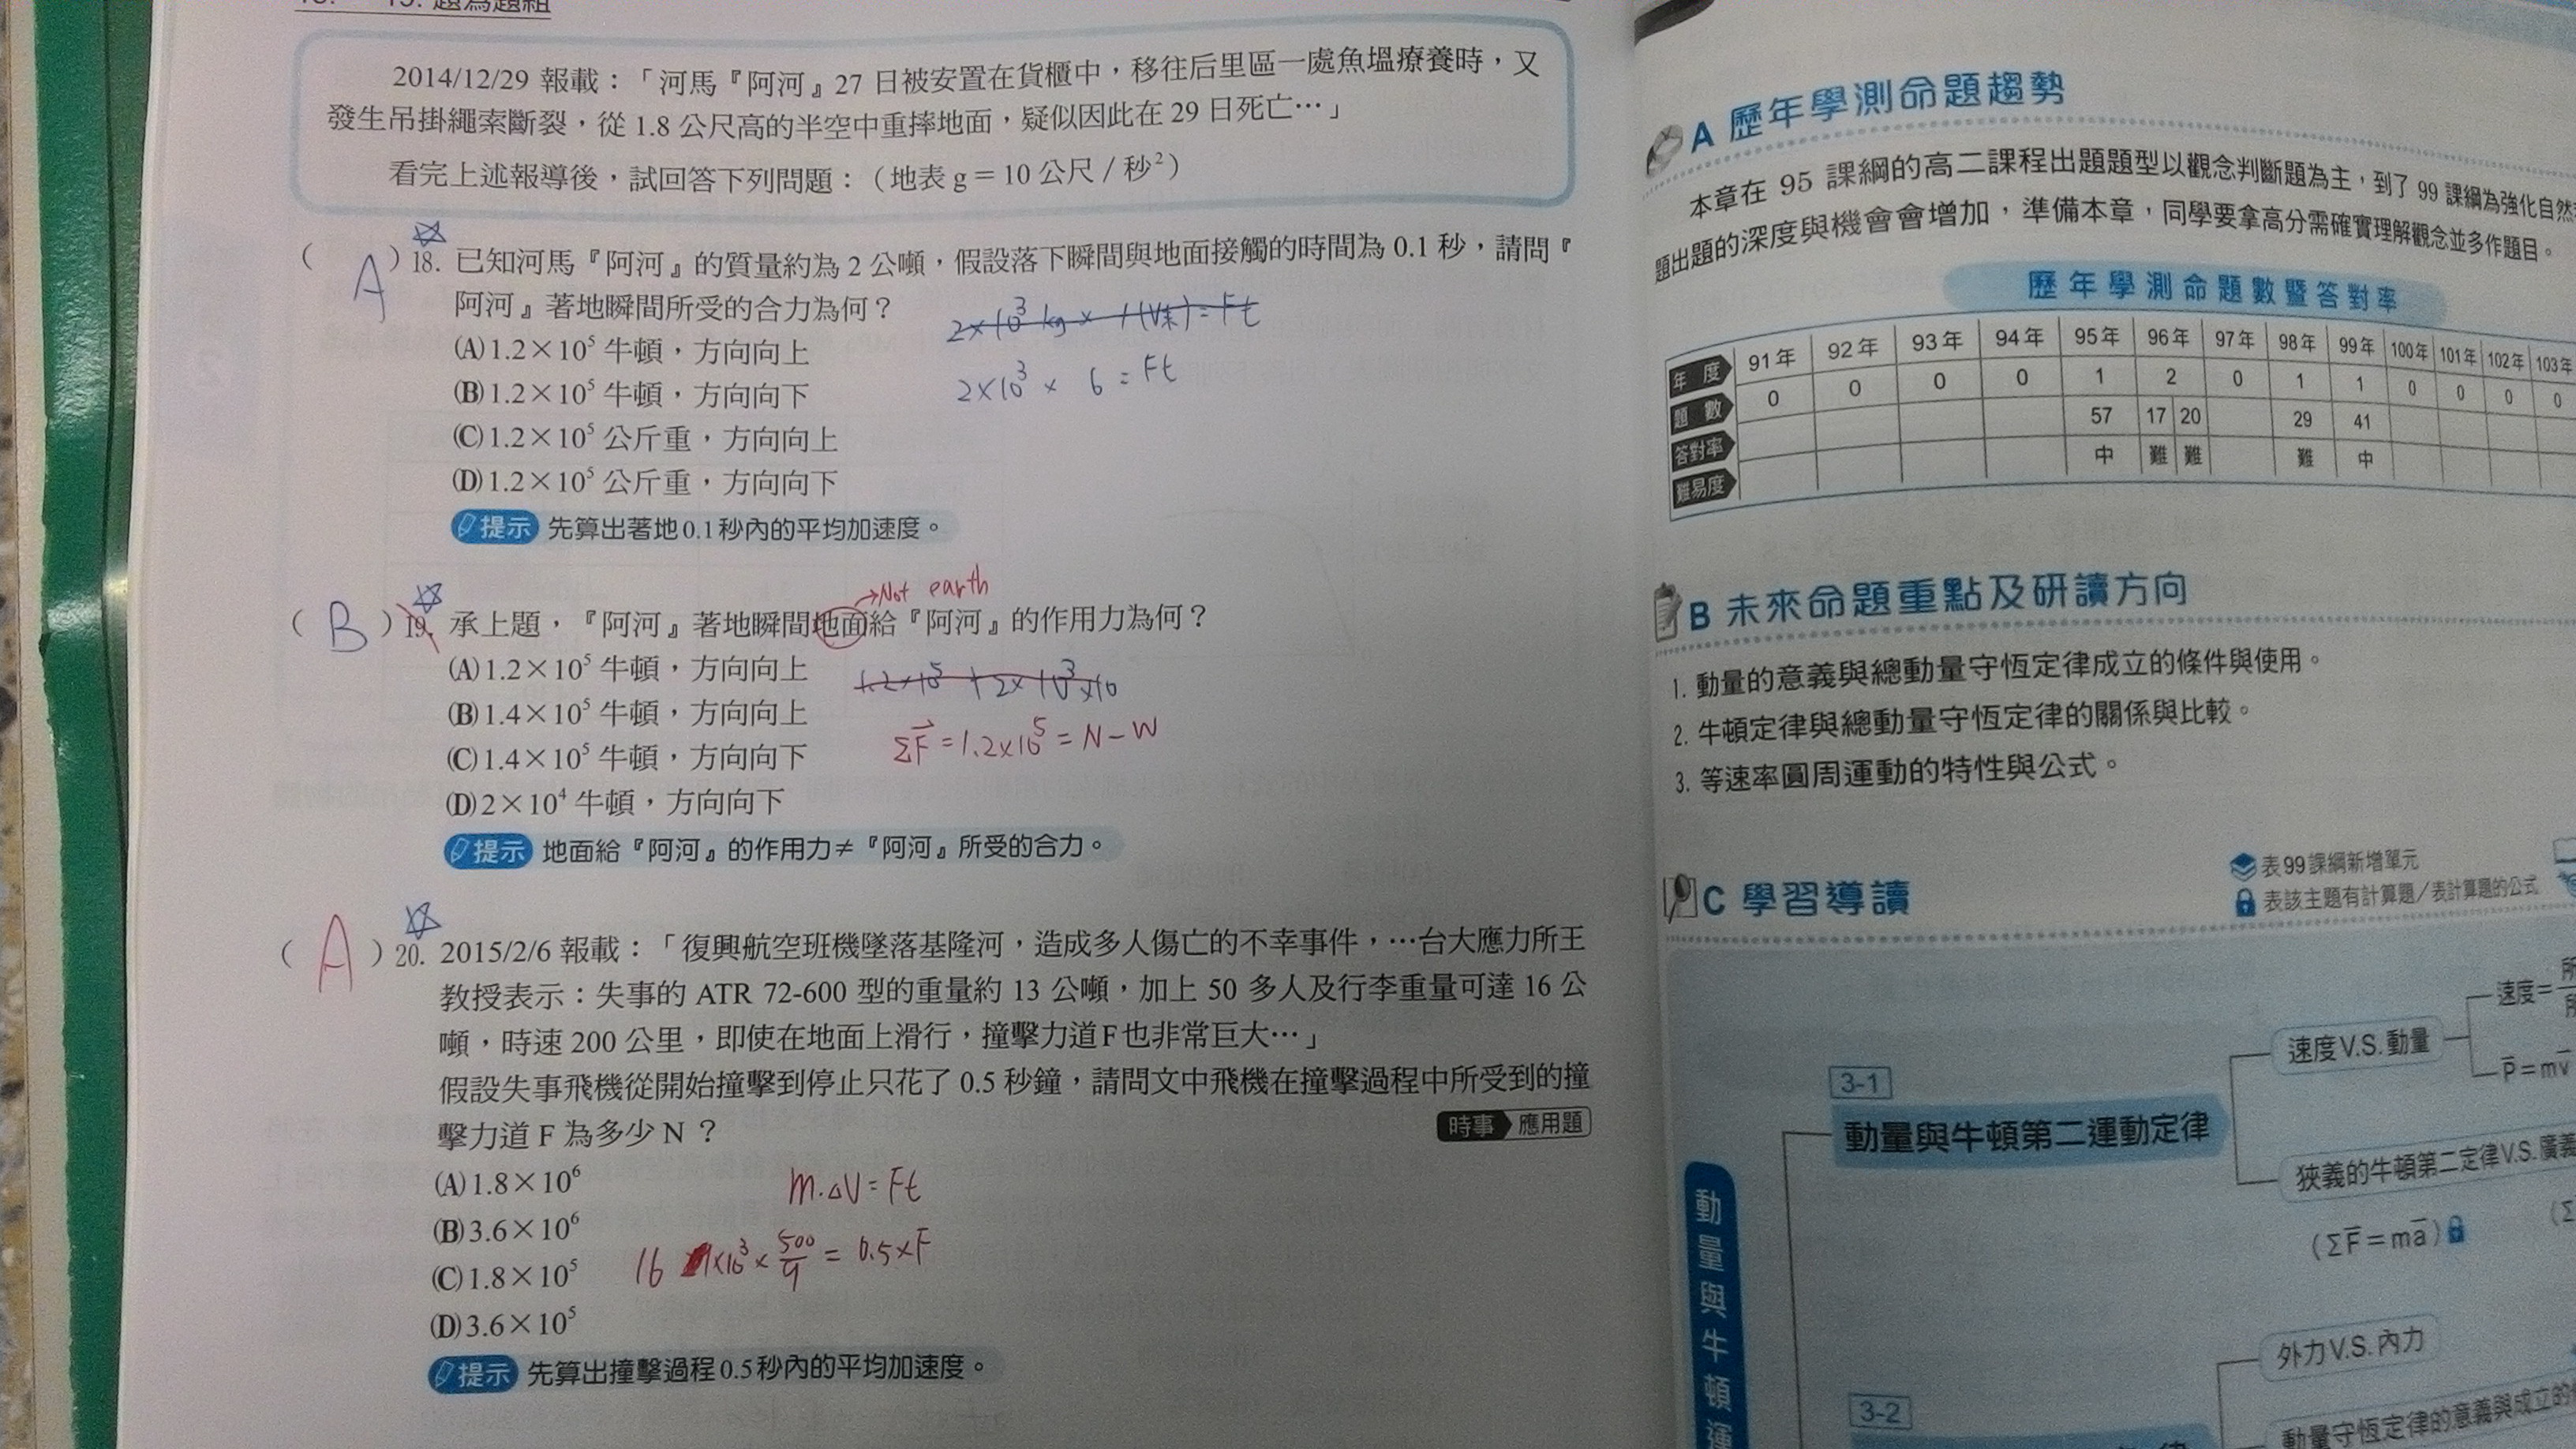 2014/12/29 報載：「河馬『阿河』27 日被安置在貨櫃中，移往后里區一處魚塭療養時，又
發生吊掛繩索斷裂，從 1.8 公尺高的半空中重摔地面，疑似因此在 29 日死亡…」
看完上述報導後，試回答下列問題：（地表 g＝10 公尺／秒²）
（ A ）18. 已知河馬『阿河』的質量約為 2 公噸，假設落下瞬間與地面接觸的時間為 0.1 秒，請問『
阿河』著地瞬間所受的合力為何？
2×10³ kg × (V末) = Ft
(A)1.2×10⁵ 牛頓，方向向上
2×10³ × 6 = Ft
(B)1.2×10⁵ 牛頓，方向向下
(C)1.2×10⁵ 公斤重，方向向上
(D)1.2×10⁵ 公斤重，方向向下
提示 先算出著地0.1秒內的平均加速度。
→Not earth
（ B ）19. 承上題，『阿河』著地瞬間地面給『阿河』的作用力為何？
(A)1.2×10⁵ 牛頓，方向向上
1.2×10⁵ + 2×10³×10
(B)1.4×10⁵ 牛頓，方向向上
ΣF = 1.2×10⁵ = N－W
(C)1.4×10⁵ 牛頓，方向向下
(D)2×10⁴ 牛頓，方向向下
提示 地面給『阿河』的作用力≠『阿河』所受的合力。
（ A ）20. 2015/2/6 報載：「復興航空班機墜落基隆河，造成多人傷亡的不幸事件，…台大應力所王
教授表示：失事的 ATR 72-600 型的重量約 13 公噸，加上 50 多人及行李重量可達 16 公
噸，時速 200 公里，即使在地面上滑行，撞擊力道F也非常巨大…」
假設失事飛機從開始撞擊到停止只花了 0.5 秒鐘，請問文中飛機在撞擊過程中所受到的撞
擊力道 F 為多少 N ？
時事 應用題
(A)1.8×10⁶
m.△V = Ft
(B)3.6×10⁶
16 ×10³ × 500/9 = 0.5×F
(C)1.8×10⁵
(D)3.6×10⁵
提示 先算出撞擊過程0.5秒內的平均加速度。
A 歷年學測命題趨勢
本章在 95 課綱的高二課程出題題型以觀念判斷題為主，到了 99 課綱為強化自然
題出題的深度與機會會增加，準備本章，同學要拿高分需確實理解觀念並多作題目。
歷年學測命題數暨答對率
年度 91年 92年 93年 94年 95年 96年 97年 98年 99年 100年 101年 102年 103年
題數 0 0 0 0 1 2 0 1 1 0 0 0 0
答對率 57 17 20 29 41
難易度 中 難 難 難 中
B 未來命題重點及研讀方向
1. 動量的意義與總動量守恆定律成立的條件與使用。
2. 牛頓定律與總動量守恆定律的關係與比較。
3. 等速率圓周運動的特性與公式。
C 學習導讀
表99課綱新增單元
表該主題有計算題／表計算題的公式
速度＝
速度V.S.動量
P＝mv
3-1
動量與牛頓第二運動定律
狹義的牛頓第二定律V.S.廣義
(ΣF＝ma)
外力V.S.內力
3-2
動量守恆定律的意義與成立的
動量與牛頓運